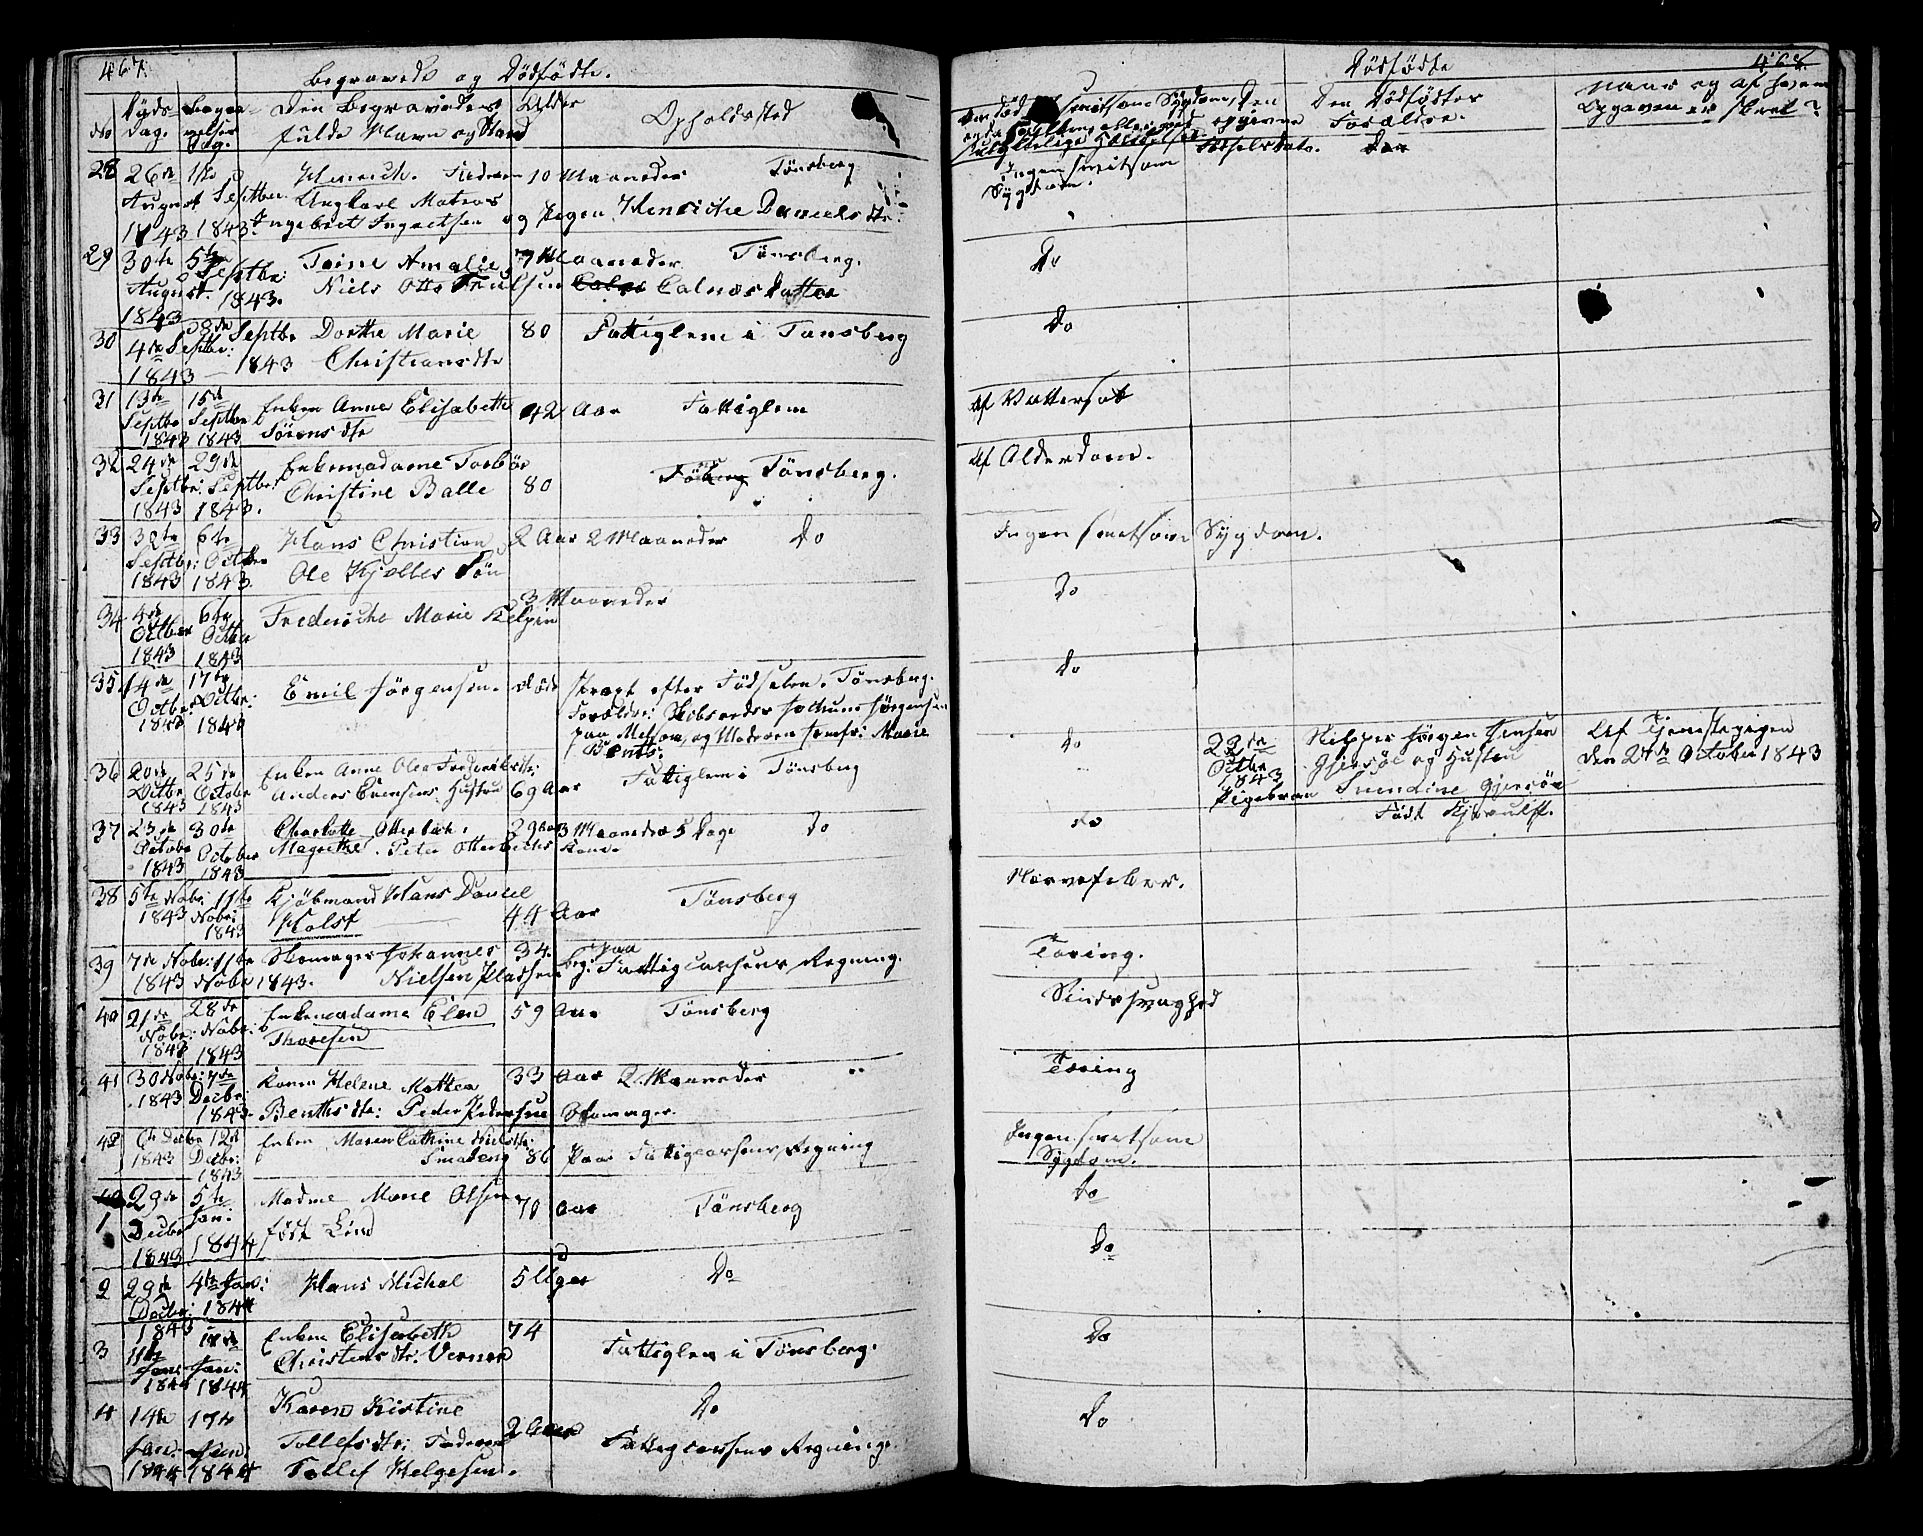 467.
Begravede og Dödfödte.
No
Döds-dag.
Begravelses Dag.
Den Begravedes fulde Navn og Stand
Alder
Opholdssted
28 26de August 1843 1ste Septbr 1843. Henrich. Faderen 10 Maaneder Tönsberg
Ungkarl Matros
Ingebret og Pigen Henriche Daniels dtr:
29 30te August. 1843 5te Septbr: 1843. Trine Amalie 7 Maaneder Tönsberg.
Niels Otto Datter
30 4de Septbr: 1843 8de Septbr 1843 Dorthe Marie 80 Fattiglem i Tönsberg
Christiansdtr
31 13de Septbr 1843 15de Septbr 1843 Enken Anne Elisabeth 42 Aar Fattiglem
Sörensdtr
32 24de Septbr: 1843 29de Septbr: 1843. Enkemadame Torbör
Christine Balle 80 Tönsberg.
33 30te Septbr: 1843 6te Octbr 1843. Hans Christian 2 Aar 2 Maaneder Do
Ole Kjölles Sön
34 4de Octbr 1843 6te Octbr 1843 Frederiche Marie 3 Maaneder
35. 14de Octbr: 1843 17de Octbr: 1843 Emil Jörgensen. död stragt efter Födselen. Tönsberg.
Forældre: Skibsreder Jörgensen
paa og Moderen Jomfr: Marie
Bents:
36 20de Octbr 1843 25de October 1843 Enken Anne Olea Frederiksdtr:
Anders Evensens Hustru 69 Aar Fattiglem i Tönsberg
37 23de Octobr 1843 30te October 1843 Charlotte Otterbech. 3 Maaneder 5 Dage Do
Magrethe. Peter Otterbechs Kone.
38 5te Nobr: 1843 11te Nobr: 1843 Kjöbmand Hans Daniel
Holst 44 Aar Tönsberg
39 7de Nobr: 1843 11te Nobr 1843. Skomager Johannes 34. beg: paa Fattigcassens Regning.
Nielsen
40 21de Nobr: 1843 28de Nobr: 1843 Enkemadame Elen 59 Aar Tönsberg
Thoresen
41 30 Nobr: 1843 7de Decbr: 1843 Konen Helene Mathea 33 Aar 2 Maaneder "
Benthsdtr: Peder Pedersen Skomager.
42 6te Decbr 1843 12te Decbr: 1843 Enken Maren Cathrine Nielsdtr:
Smadeng 86 Paa Fattigcassens Regning
1 29de Decbr 1843 5te Jan: 1844 Madme Marie Olsen
född Lind 70 Aar Tönsberg
2 29de Decbr: 1843 4de Jan: 1844 Hans Michal 5 Uger Do
3 11te Jan: 1844 Jan: 1844 Enken Elisabeth 74
Christensdtr: Verner Fattiglem i Tönsberg.
4 14de Jan: 1844 17de Jan: 1844 Karen Kirstine Do
Tollefsdtr: Faderen 2 Aar Fattigcassens Regning.
Tollef Helgesen.
468
Dödfödte
smitsom Sygdom,
Den opgivne Födselsdato.
Den Dödfödtes Forældre.
Naar og af hvem Opgaven er skeet?
Ingen smitsom
Sygdom.
Do
Do
Af Vattersot
Af Alderdom.
Ingen smitsom Sygdom.
Do
Do
Do 22de Octbr 1843 Skipper Jörgen Jensen
Gjersöe og Hustru
Pigebarn Svendine Gjersöe
Född Kjerulff.
Af Tjenestepigen
den 24de October 1843
Do
Nervefeber.
Tæring.
Sindssvaghed
Tæring
Ingen smitsom
Sygdom.
Do
Do
Do
Do